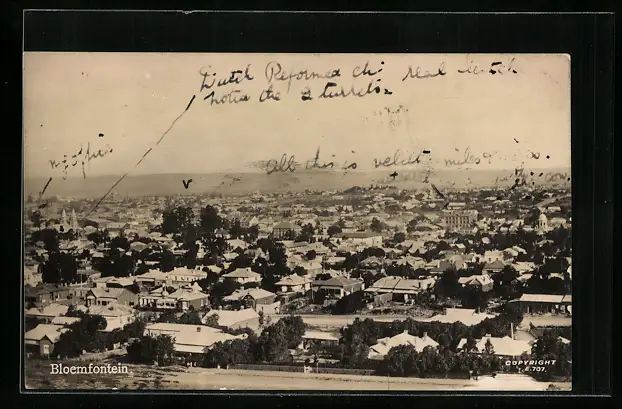 Dutch Reformed ch: real dutch
notice the 2 turrets
my office
All this is veldt miles
Bloemfontein
COPYRIGHT
E.707.